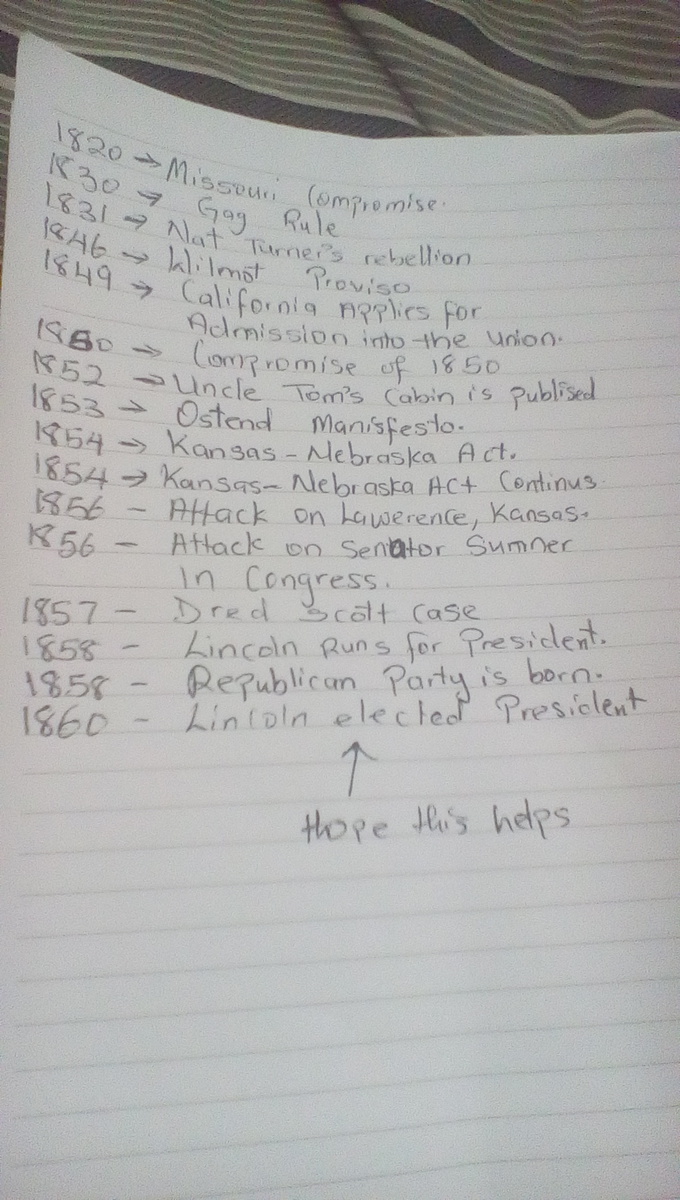 1820 → Missouri Compromise.
1830 → Gag Rule
1831 → Nat Turner's rebellion
1846 → Wilmot Proviso
1849 → California Applies for
Admission into the union.
1850 → Compromise of 1850
1852 → Uncle Tom's Cabin is publised
1853 → Ostend Manisfesto.
1854 → Kansas - Nebraska Act.
1854 → Kansas - Nebraska Act Continus.
1856 - Attack on Lawerence, Kansas.
1856 - Attack on Senator Sumner
In Congress.
1857 - Dred Scott case
1858 - Lincoln Runs for President.
1858 - Republican Party is born.
1860 - Lincoln elected President
↑
Hope this helps